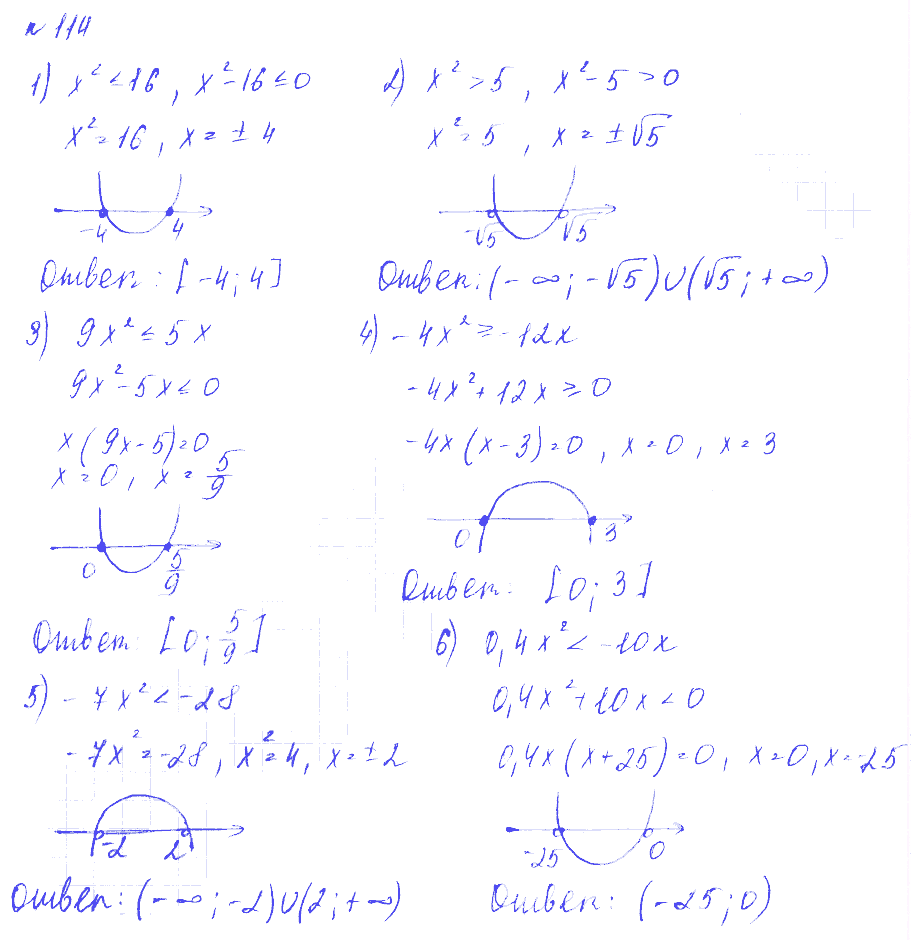 n 114
1) x² ≤ 16 , x² - 16 ≤ 0
x² = 16 , x = ± 4
-4 4
Ответ: [ -4; 4 ]
2) x² > 5 , x² - 5 > 0
x² = 5 , x = ± √5
-√5 √5
Ответ: (- ∞; -√5) ∪ (√5; + ∞)
3) 9x² ≤ 5x
9x² - 5x ≤ 0
x(9x - 5) = 0
x = 0, x = 5/9
0 5/9
Ответ: [0; 5/9]
4) - 4x² ≥ -12x
-4x² + 12x ≥ 0
-4x(x - 3) = 0 , x = 0 , x = 3
0 3
Ответ: [0; 3]
5) - 7x² < -28
-7x² = -28 , x² = 4, x = ± 2
-2 2
Ответ: (- ∞; -2) ∪ (2; + ∞)
6) 0,4x² < -10x
0,4x² + 10x < 0
0,4x(x + 25) = 0, x = 0, x = -25
-25 0
Ответ: (-25; 0)